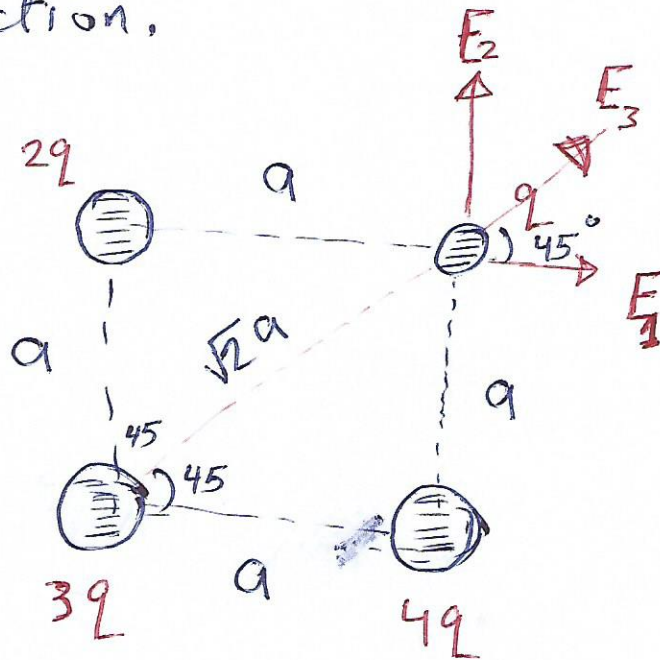 ction.
E2
E3
2q
a
q
45°
E1
a
√2 a
a
45
45
a
3q
4q